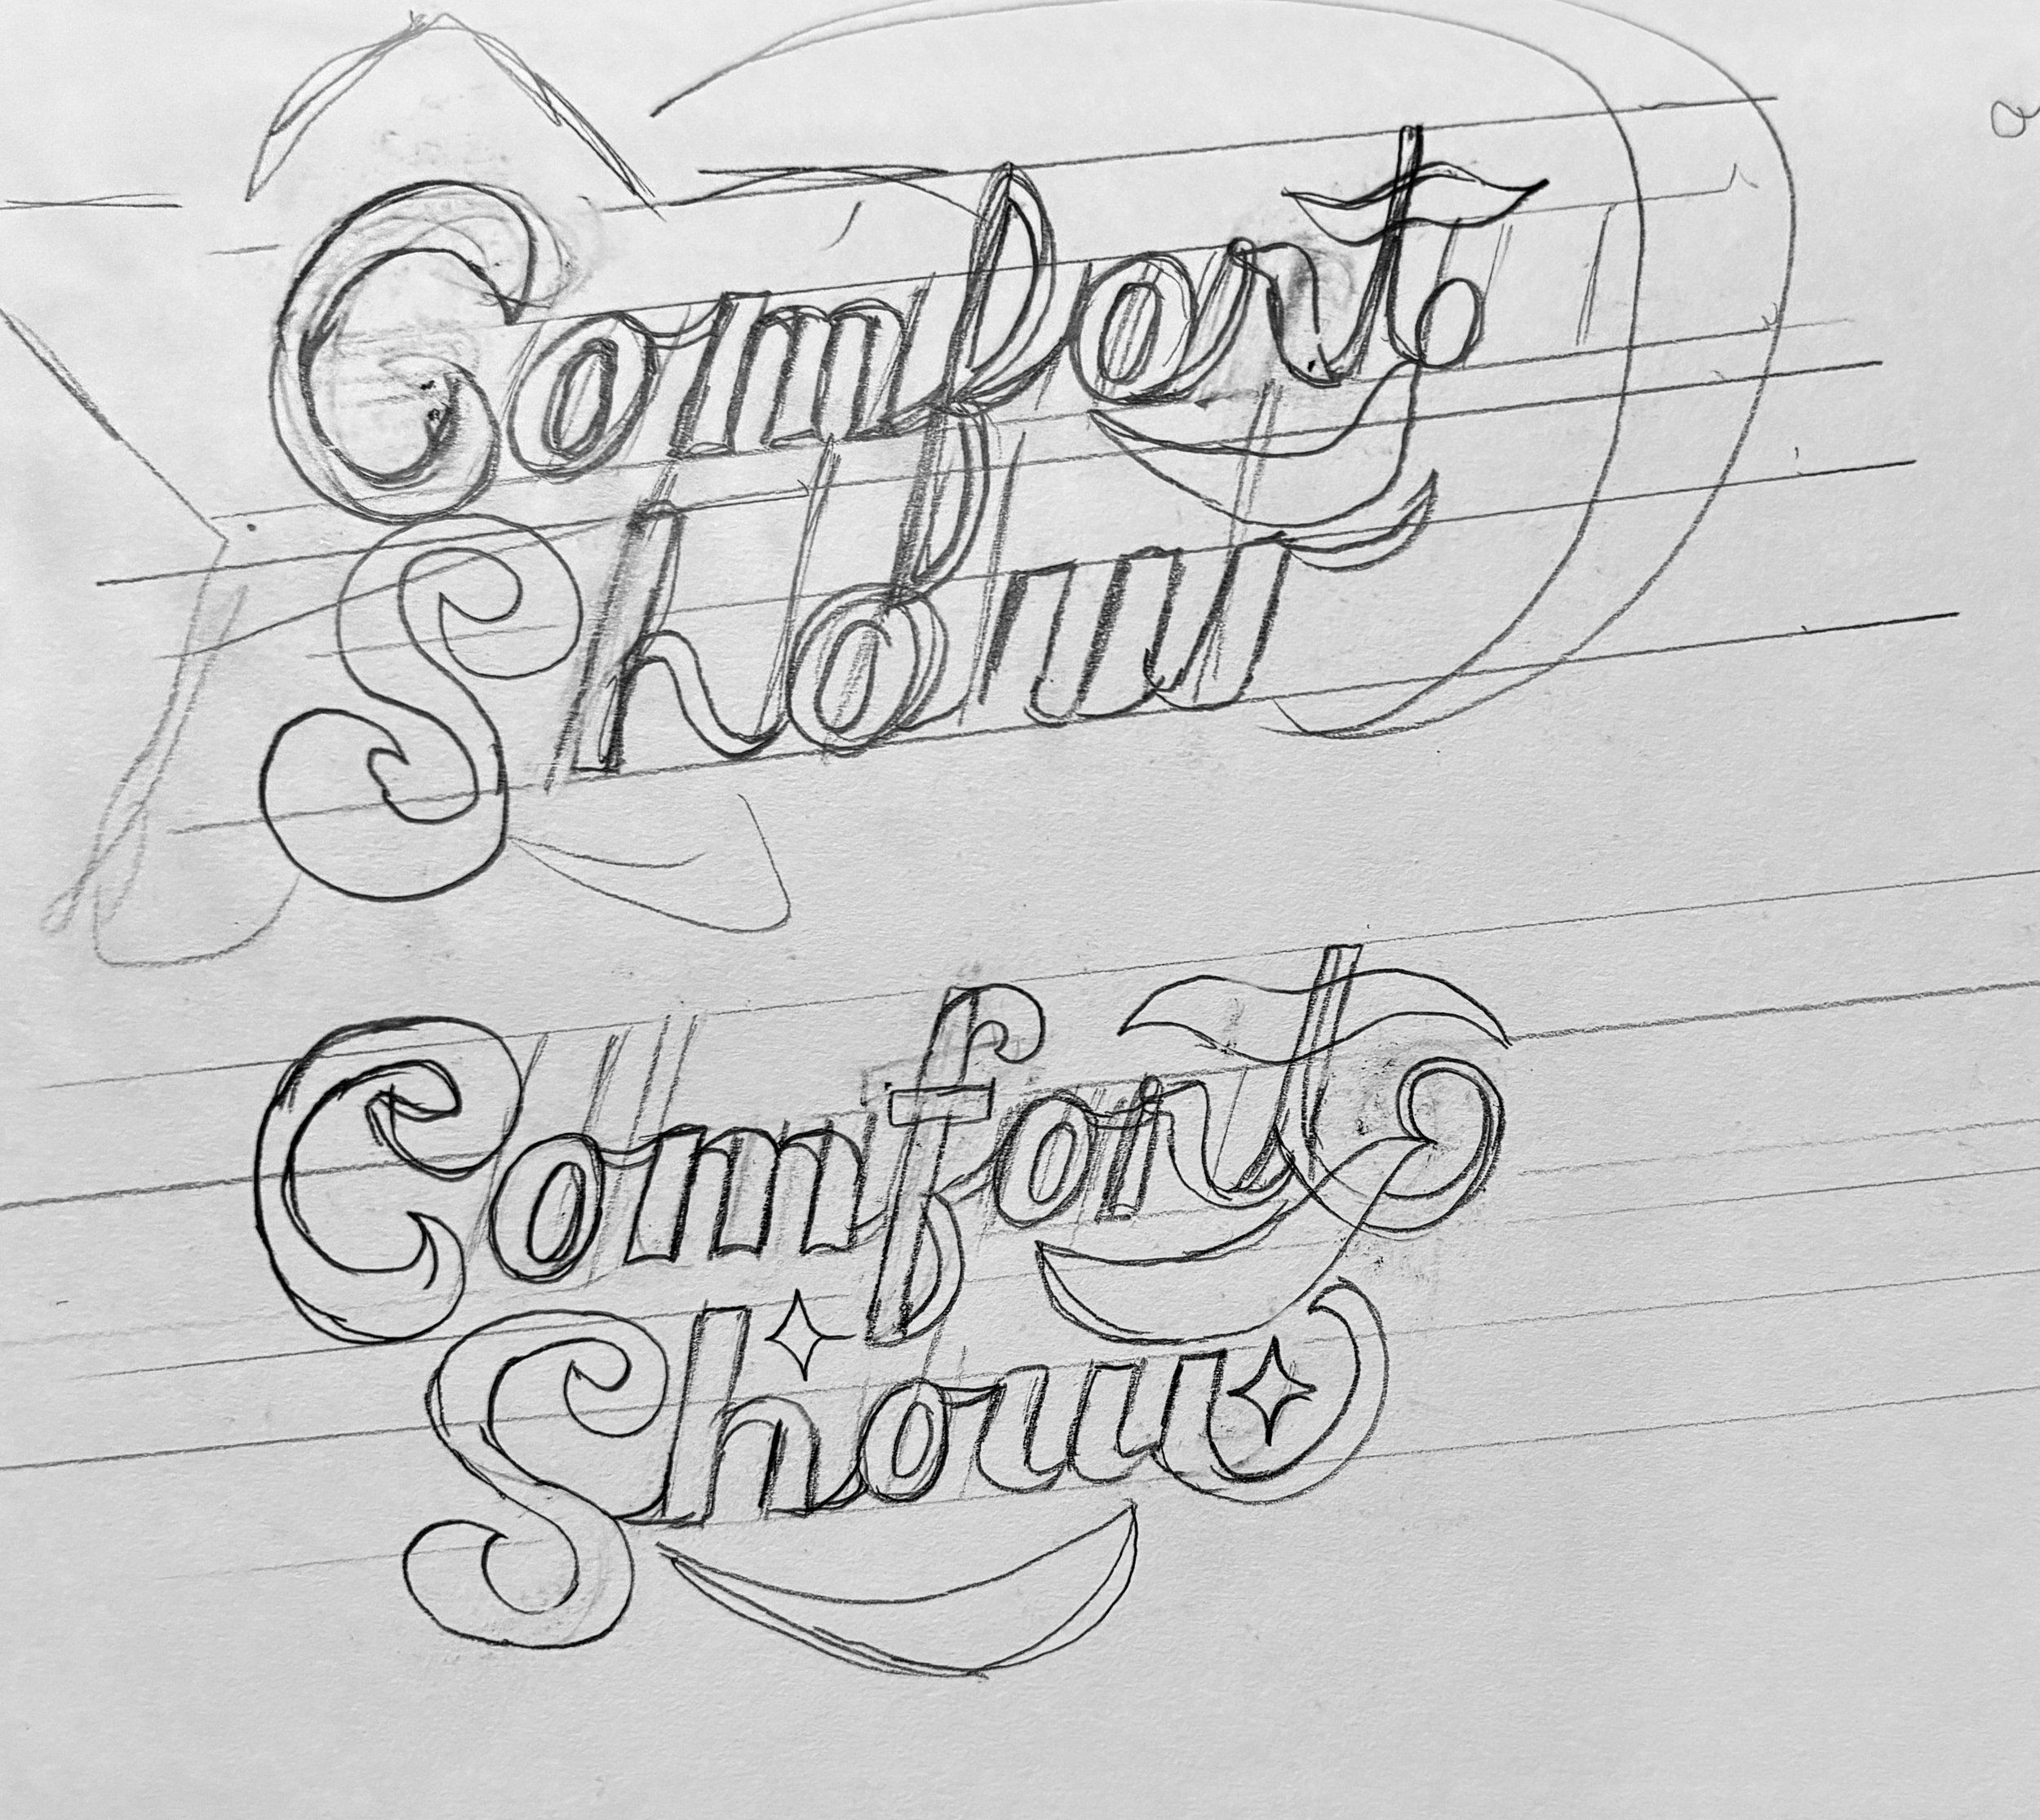 Comfort
Show
Comfort
Show